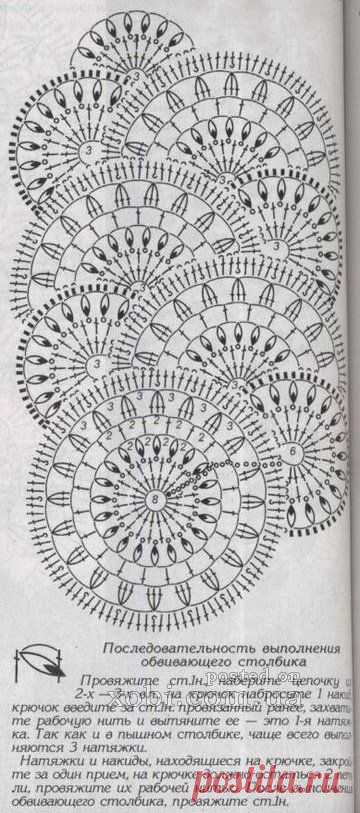 3
3
3
3
3
3
3
3 3 3 3 3
2 2 2 2 2 2
6
8
Последовательность выполнения
обвивающего столбика
Провяжите ст.1н., наберите цепочку и
2-х — 3-х вп., на крючок набросьте 1 наки
крючок введите за ст.1н. провязанный ранее, захвати
те рабочую нить и вытяните ее — это 1-я натяж
ка. Так как и в пышном столбике, чаще всего выпол
няются 3 натяжки.
Натяжки и накиды, находящиеся на крючке, закрой
те за один прием, на крючке должно остаться 2 пет
ли, провяжите их рабочей нитью.
обвивающего столбика, провяжите ст.1н.
postad.on
xobi.com.ua
postila.ru